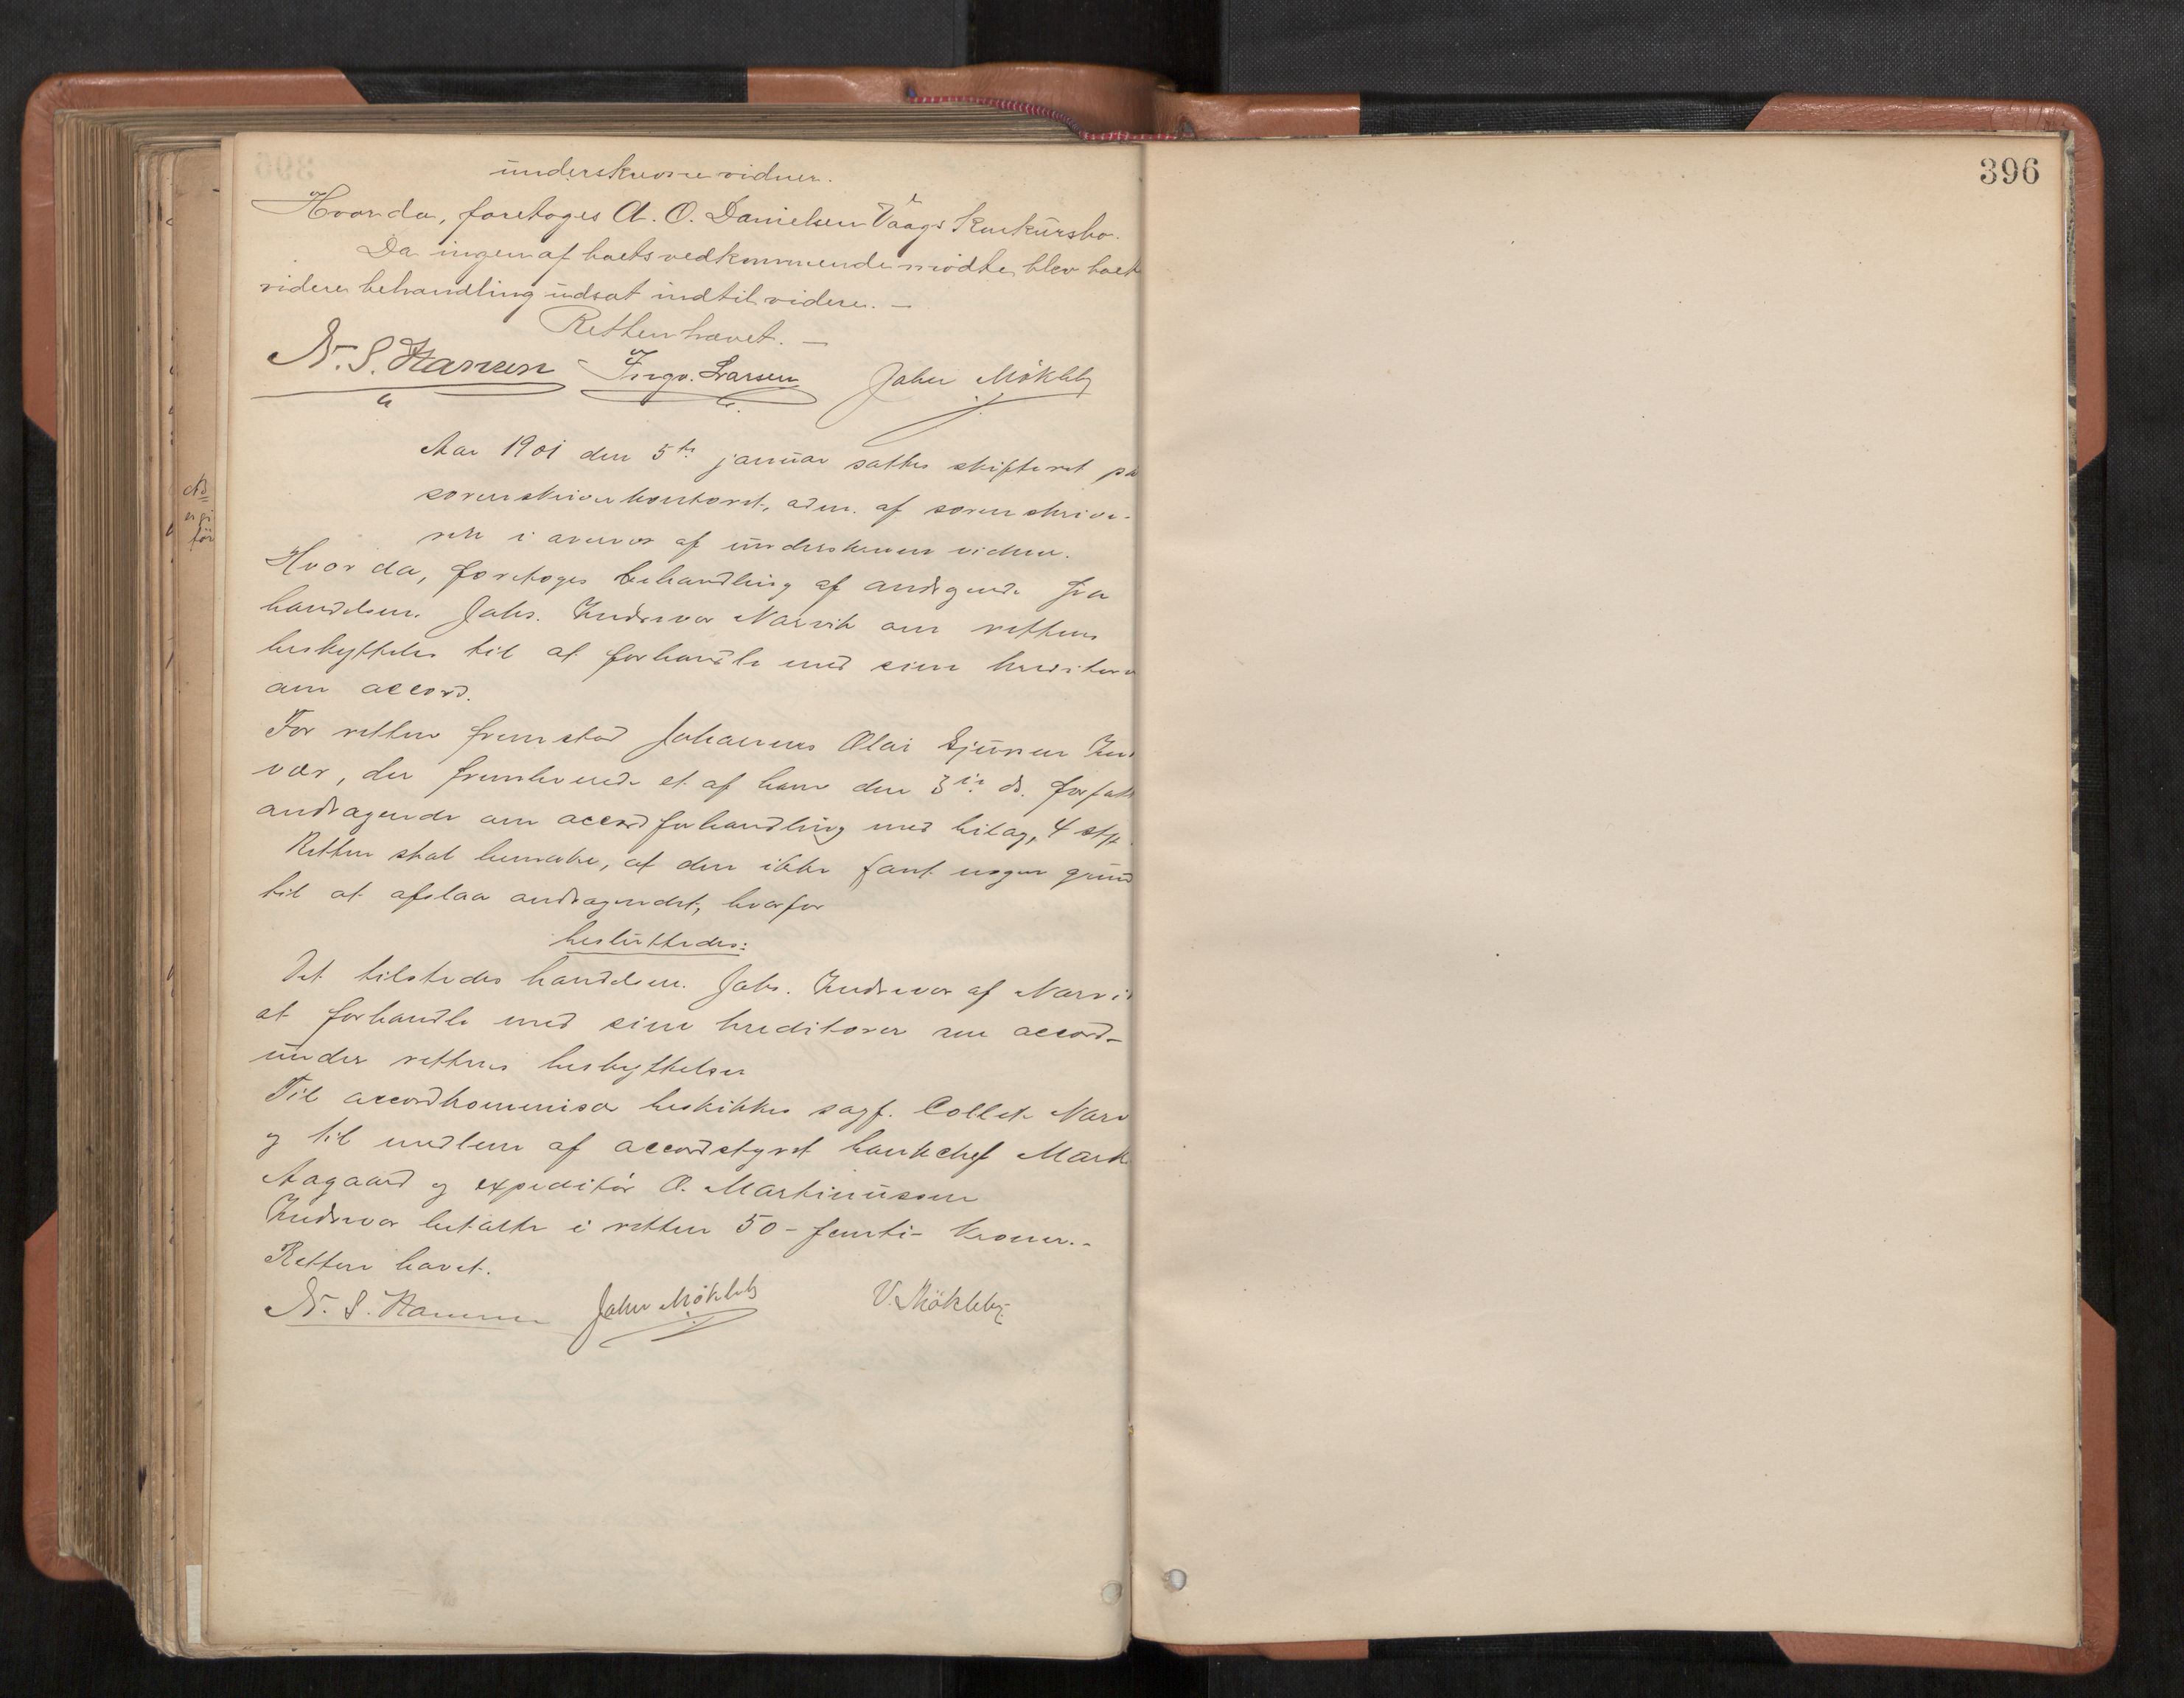 underskrevne vidner.
Hvor da, foretoges A. O. Danielsen Vaags Konkursbo.
Da ingen af boets vedkommende mødte, blev boet
videre behandling udsat indtil videre. —
Retten hævet. —
N. S. Hansen Ingv. Larsen John Mökleby
Aar 1901 den 5te januar sattes skifteret på
sorenskriverkontoret, adm. af sorenskrive-
ren i overvær af underskrevne vidner.
Hvor da, foretoges behandling af andragende fra
handelsm. Johs. Indrevær Narvik om rettens
beskyttelse til at forhandle med sine kreditorer
om accord.
For retten fremstod Johannes Olai Sjursen Ind
vær, der fremleverede et af ham den 3die ds. forfatt
andragende om accordforhandling med bilag, 4 stk.
Retten skal bemærke, at den ikke fant nogen grund
til at afslaa andragendet, hvorfor
besluttedes:
Det tilstedes handelsm. Johs. Indrevær af Narvi
at forhandle med sine kreditorer om accord
under rettens beskyttelse
Til accordkommisær beskikkes sagf. Collet Narv
og til medlem af accordstyret bankchef Mark
Aagaard og expeditör O. Martinussen
Indrevær betalte i retten 50 - femti - kroner. -
Retten hævet.
N. S. Hansen John Mökleby V. Mökleby
396